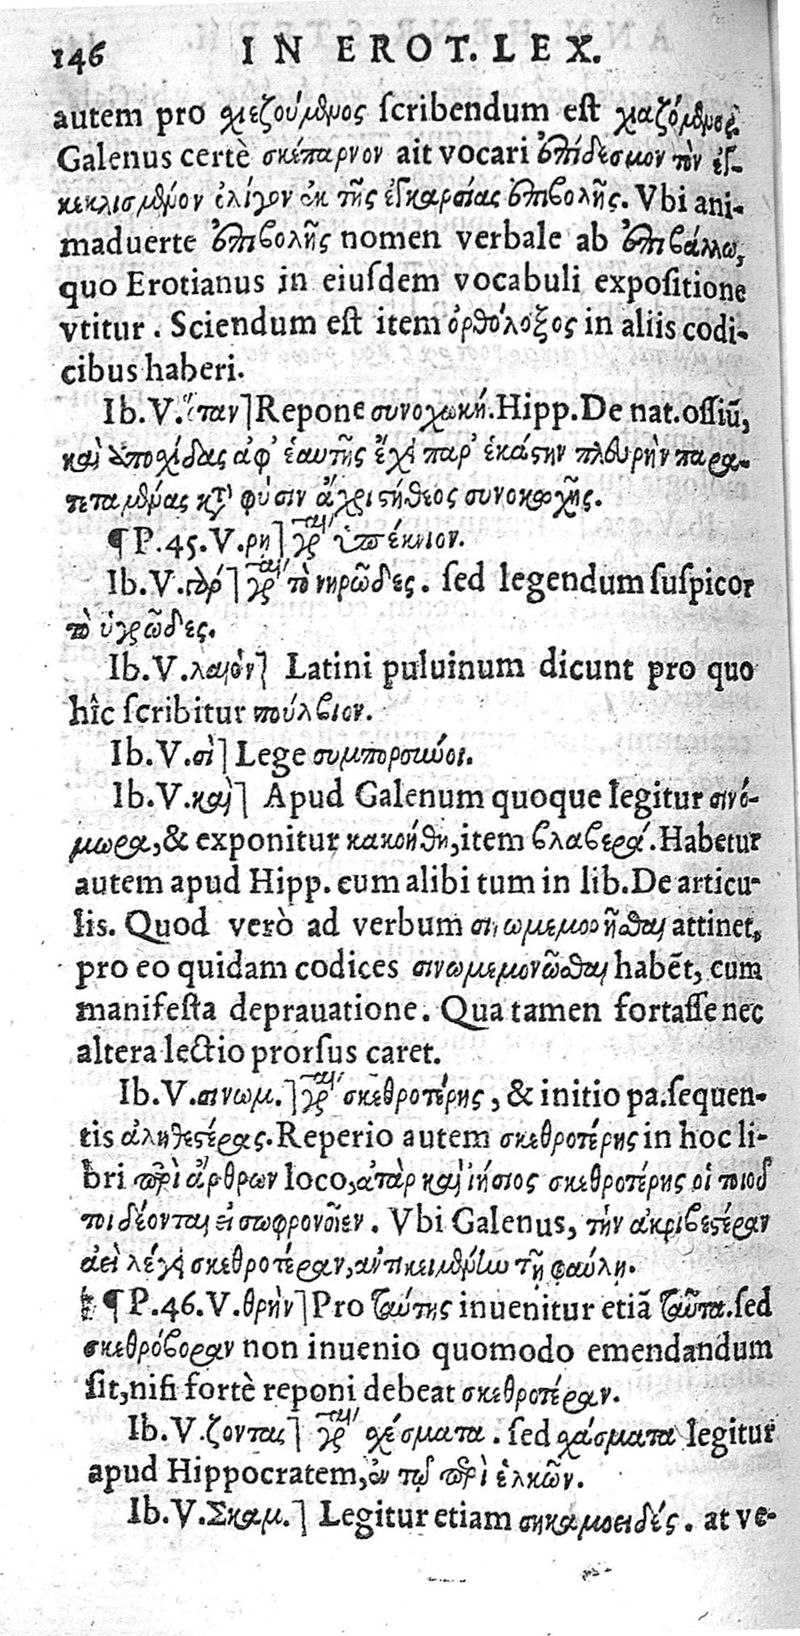 146 IN EROT. LEX.
autem pro χιεζούμενος scribendum est χιαζόμενος.
Galenus certè σκέπαρνον ait vocari ἐπίδεσμον τὸν ἐγ-
κεκλισμένον ὀλίγον ἐκ τῆς ἐγκαρσίας ἐπιβολῆς. Vbi ani-
maduerte ἐπιβολῆς nomen verbale ab ἐπιβάλλω,
quo Erotianus in eiusdem vocabuli expositione
vtitur. Sciendum est item ὀρθόλοξος in aliis codi-
cibus haberi.
Ib. V. ἵπαν] Repone συνοχωκή. Hipp. De nat. ossiū,
καὶ ἀποσχίδας ἀφ' ἑαυτῆς ἔχει παρ' ἑκάστην πλευρὴν παρα-
τεταμένας κατὰ φύσιν ἄχρι στήθεος συνοκωχῆς.
¶ P. 45. V. ρη] γρ ὑπέκπιον.
Ib. V. πὸρ] γρ τὸ νηρῶδες. sed legendum suspicor
τὸ ὑγρῶδες.
Ib. V. λαιὸν] Latini puluinum dicunt pro quo
hîc scribitur πούλβιον.
Ib. V. σὶ] Lege συμπορσιύοι.
Ib. V. καὶ] Apud Galenum quoque legitur σινό-
μωρα, & exponitur κακοήθη, item βλαβερά. Habetur
autem apud Hipp. cum alibi tum in lib. De articu-
lis. Quod verò ad verbum σινωμεμορῆσθαι attinet,
pro eo quidam codices σινωμεμονῶσθαι habēt, cum
manifesta deprauatione. Qua tamen fortasse nec
altera lectio prorsus caret.
Ib. V. σινωμ.] γρ σκεθροτέρης, & initio pa. sequen-
tis ἀληθεστέρας. Reperio autem σκεθροτέρης in hoc li-
bri περὶ ἄρθρων loco, ἀτὰρ καὶ ἰήσιος σκεθροτέρης οἱ τοιοῦ
τοι δέονται εἰ σωφρονοῖεν. Vbi Galenus, τὴν ἀκριβεστέραν
ἀεὶ λέγει σκεθροτέραν, ἀντικειμένην τῇ φαύλῃ.
¶ P. 46. V. θρὴν] Pro ταύτης inuenitur etiā ταῦτα. sed
σκεθρόβοραν non inuenio quomodo emendandum
sit, nisi fortè reponi debeat σκεθροτέραν.
Ib. V. ζονται] γρ χέσματα. sed χάσματα legitur
apud Hippocratem, ἐν τῷ περὶ ἑλκῶν.
Ib. V. Σκαμ.] Legitur etiam σηκαμοειδές. at ve-